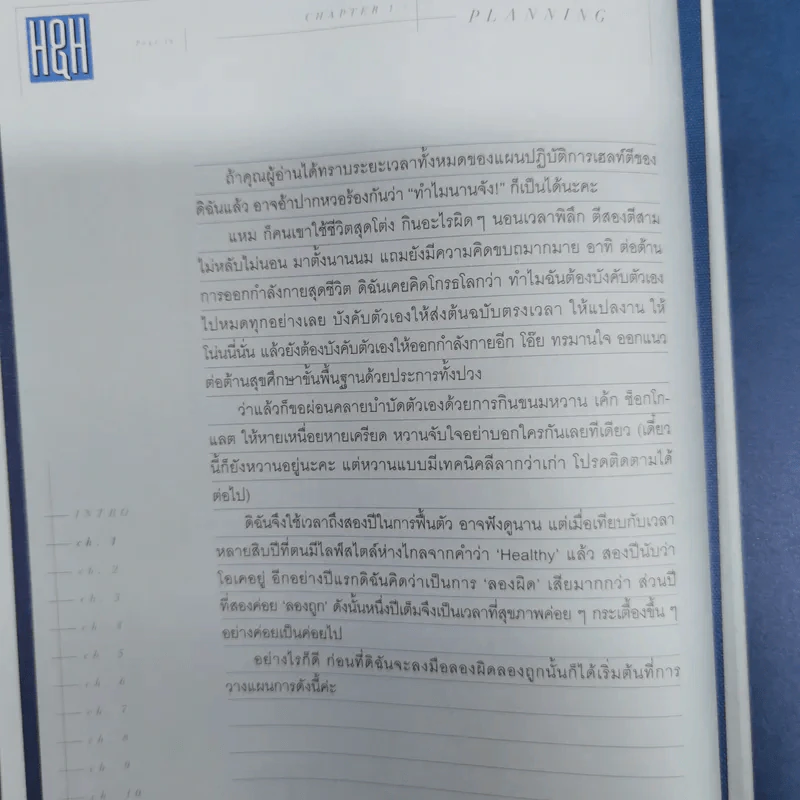 H&H
CHAPTER 1
PLANNING
ถ้าคุณผู้อ่านได้ทราบระยะเวลาทั้งหมดของแผนปฏิบัติการเฮลท์ตี้ของ
ดิฉันแล้ว อาจอ้าปากหวอร้องกันว่า “ทำไมนานจัง!” ก็เป็นได้นะคะ
แหม ก็คนเขาใช้ชีวิตสุดโต่ง กินอะไรผิด ๆ นอนเวลาพิลึก ตีสองตีสาม
ไม่หลับไม่นอน มาตั้งนานนม แถมยังมีความคิดขบถมากมาย อาทิ ต่อต้าน
การออกกำลังกายสุดชีวิต ดิฉันเคยคิดโกรธโลกว่า ทำไมฉันต้องบังคับตัวเอง
ไปหมดทุกอย่างเลย บังคับตัวเองให้ส่งต้นฉบับตรงเวลา ให้แปลงาน ให้
โน่นนี่นั่น แล้วยังต้องบังคับตัวเองให้ออกกำลังกายอีก โอ๊ย ทรมานใจ ออกแนว
ต่อต้านสุขศึกษาขั้นพื้นฐานด้วยประการทั้งปวง
ว่าแล้วก็ขอผ่อนคลายบำบัดตัวเองด้วยการกินขนมหวาน เค้ก ช็อกโก-
แลต ให้หายเหนื่อยหายเครียด หวานจับใจอย่าบอกใครกันเลยทีเดียว (เดี๋ยว
นี้ก็ยังหวานอยู่นะคะ แต่หวานแบบมีเทคนิคลีลากว่าเก่า โปรดติดตามได้
ต่อไป)
ดิฉันจึงใช้เวลาถึงสองปีในการฟื้นตัว อาจฟังดูนาน แต่เมื่อเทียบกับเวลา
หลายสิบปีที่ตนมีไลฟ์สไตล์ห่างไกลจากคำว่า ‘Healthy’ แล้ว สองปีนับว่า
โอเคอยู่ อีกอย่างปีแรกดิฉันคิดว่าเป็นการ ‘ลองผิด’ เสียมากกว่า ส่วนปี
ที่สองค่อย ‘ลองถูก’ ดังนั้นหนึ่งปีเต็มจึงเป็นเวลาที่สุขภาพค่อย ๆ กระเตื้องขึ้น ๆ
อย่างค่อยเป็นค่อยไป
อย่างไรก็ดี ก่อนที่ดิฉันจะลงมือลองผิดลองถูกนั้นก็ได้เริ่มต้นที่การ
วางแผนการดังนี้ค่ะ
INTRO
ch. 1
ch. 2
ch. 3
ch. 4
ch. 5
ch. 6
ch. 7
ch. 8
ch. 9
ch. 10